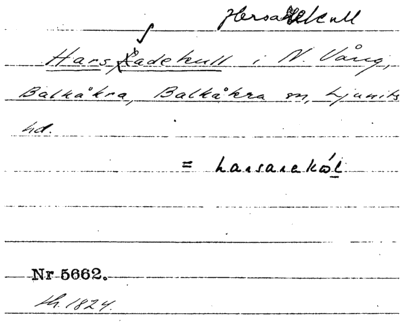 Hersa kull
Hars ladekull i N. Vång,
Balkåkra, Balkåkra sn, Ljunits
hd.
= harsarekål
Nr 5662.
Ak. 1824.